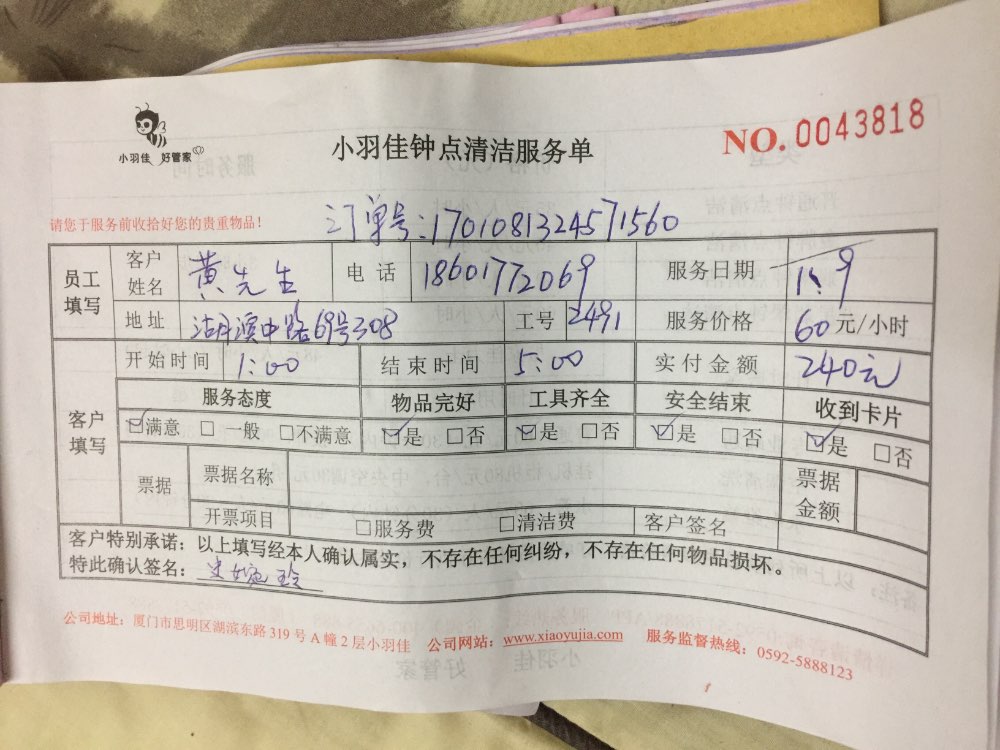 小羽佳 好管家
小羽佳钟点清洁服务单
NO.0043818
请您于服务前收拾好您的贵重物品!
订单号:1701081324571560
员工填写 客户姓名 黄先生 电话 18601772069 服务日期 1.9
地址 湖滨中路69号308 工号 2491 服务价格 60元/小时
客户填写 开始时间 1:00 结束时间 5:00 实付金额 240元
服务态度 物品完好 工具齐全 安全结束 收到卡片
☑满意 □一般 □不满意 ☑是 □否 ☑是 □否 ☑是 □否 ☑是 □否
票据 票据名称 票据金额
开票项目 □服务费 □清洁费 客户签名
客户特别承诺:以上填写经本人确认属实,不存在任何纠纷,不存在任何物品损坏。
特此确认签名:
公司地址:厦门市思明区湖滨东路319号A幢2层小羽佳 公司网站:www.xiaoyujia.com 服务监督热线:0592-5888123